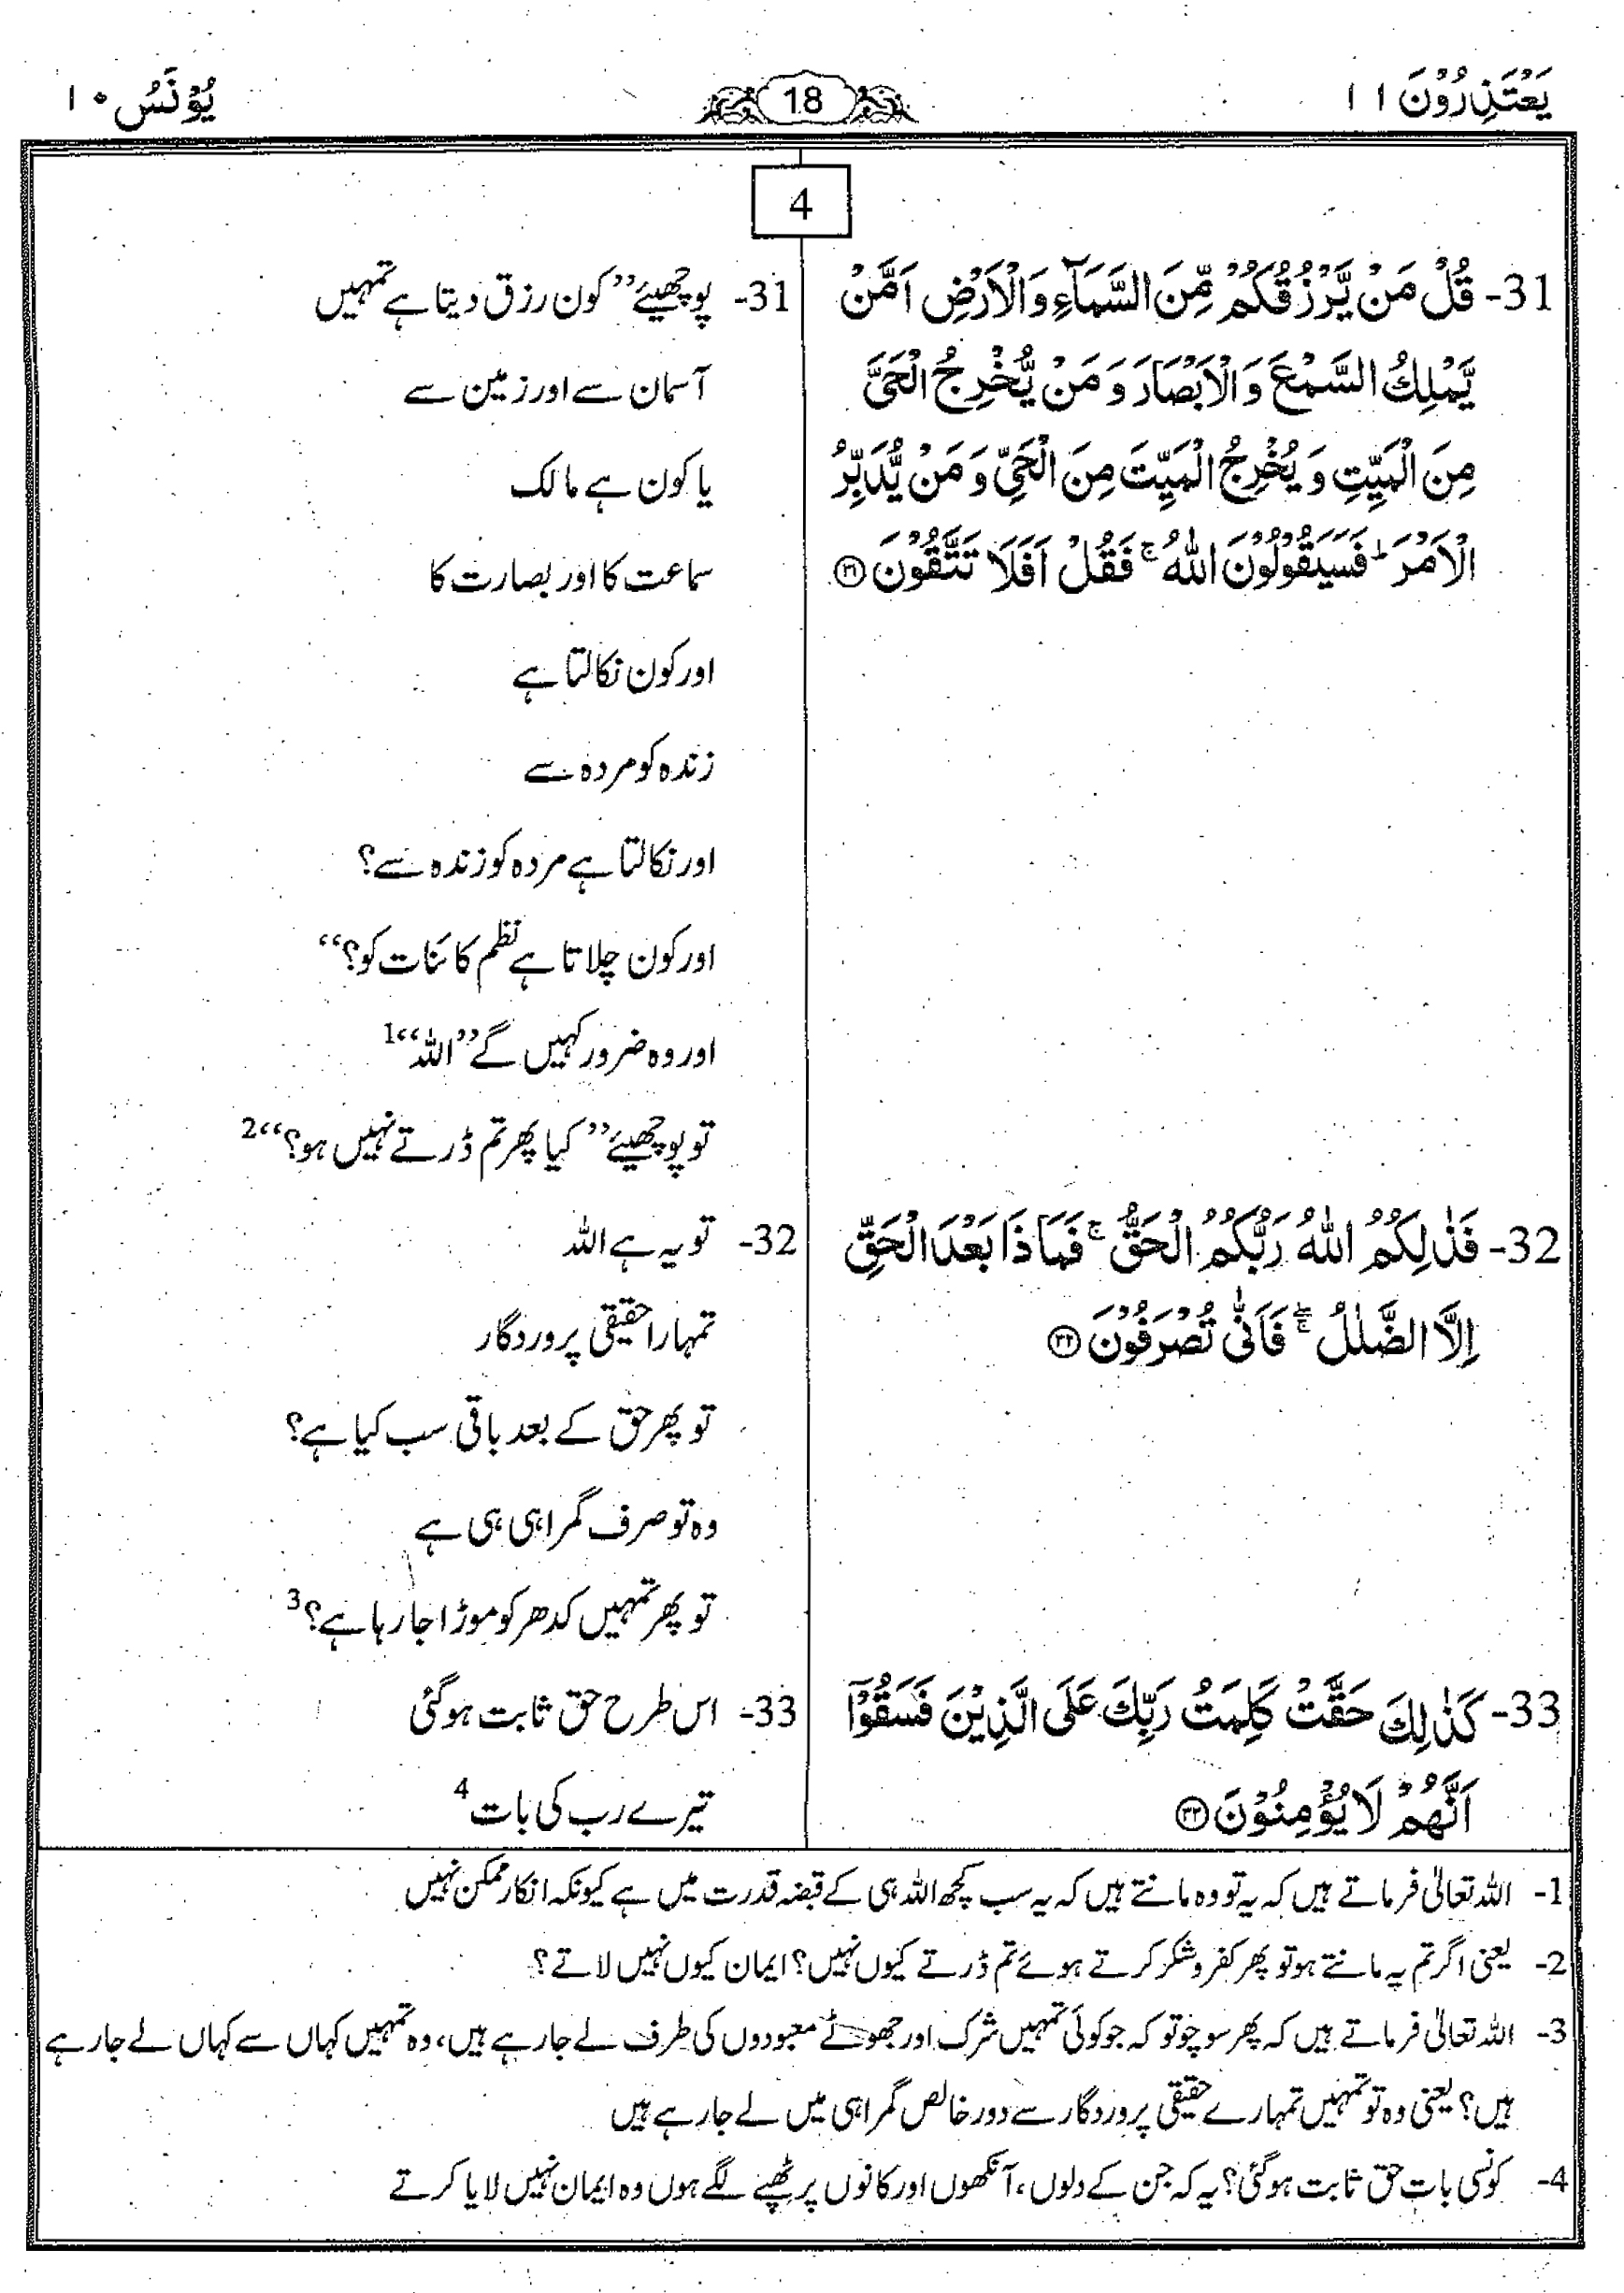 يَعْتَذِرُوْنَ ۱۱
18
يُوْنَسُ ۱۰
4
31- قُلْ مَنْ يَّرْزُقُكُمْ مِّنَ السَّمَآءِ وَالْاَرْضِ اَمَّنْ
يَّمْلِكُ السَّمْعَ وَالْاَبْصَارَ وَمَنْ يُّخْرِجُ الْحَيَّ
مِنَ الْمَيِّتِ وَيُخْرِجُ الْمَيِّتَ مِنَ الْحَيِّ وَمَنْ يُّدَبِّرُ
الْاَمْرَ ؕ فَسَيَقُوْلُوْنَ اللّٰهُ ۚ فَقُلْ اَفَلَا تَتَّقُوْنَ ۳۱
31- پوچھیئے ’’کون رزق دیتا ہے تمہیں
آسمان سے اور زمین سے
یا کون ہے مالک
سماعت کا اور بصارت کا
اور کون نکالتا ہے
زندہ کو مردہ سے
اور نکالتا ہے مردہ کو زندہ سے؟
اور کون چلاتا ہے نظم کائنات کو؟‘‘
اور وہ ضرور کہیں گے ’’اللہ‘‘1
تو پوچھیئے ’’کیا پھر تم ڈرتے نہیں ہو؟‘‘2
32- فَذٰلِكُمُ اللّٰهُ رَبُّكُمُ الْحَقُّ ۚ فَمَاذَا بَعْدَ الْحَقِّ
اِلَّا الضَّلٰلُ ۖۚ فَاَنّٰى تُصْرَفُوْنَ ۳۲
32- تو یہ ہے اللہ
تمہارا حقیقی پروردگار
تو پھر حق کے بعد باقی سب کیا ہے؟
وہ تو صرف گمراہی ہی ہے
تو پھر تمہیں کدھر کو موڑا جا رہا ہے؟3
33- كَذٰلِكَ حَقَّتْ كَلِمَتُ رَبِّكَ عَلَى الَّذِيْنَ فَسَقُوْۤا
اَنَّهُمْ لَا يُؤْمِنُوْنَ ۳۳
33- اس طرح حق ثابت ہوگئی
تیرے رب کی بات4
1- اللہ تعالیٰ فرماتے ہیں کہ یہ تو وہ مانتے ہیں کہ یہ سب کچھ اللہ ہی کے قبضہ قدرت میں ہے کیونکہ انکار ممکن نہیں
2- یعنی اگر تم یہ مانتے ہو تو پھر کفر و شکر کرتے ہوئے تم ڈرتے کیوں نہیں؟ ایمان کیوں نہیں لاتے؟
3- اللہ تعالیٰ فرماتے ہیں کہ پھر سوچو تو کہ جو کوئی تمہیں شرک اور جھوٹے معبودوں کی طرف لے جا رہے ہیں، وہ تمہیں کہاں سے کہاں لے جا رہے
ہیں؟ یعنی وہ تو تمہیں تمہارے حقیقی پروردگار سے دور خالص گمراہی میں لے جا رہے ہیں
4- کونسی بات حق ثابت ہوگئی؟ یہ کہ جن کے دلوں، آنکھوں اور کانوں پر ٹھپے لگے ہوں وہ ایمان نہیں لایا کرتے